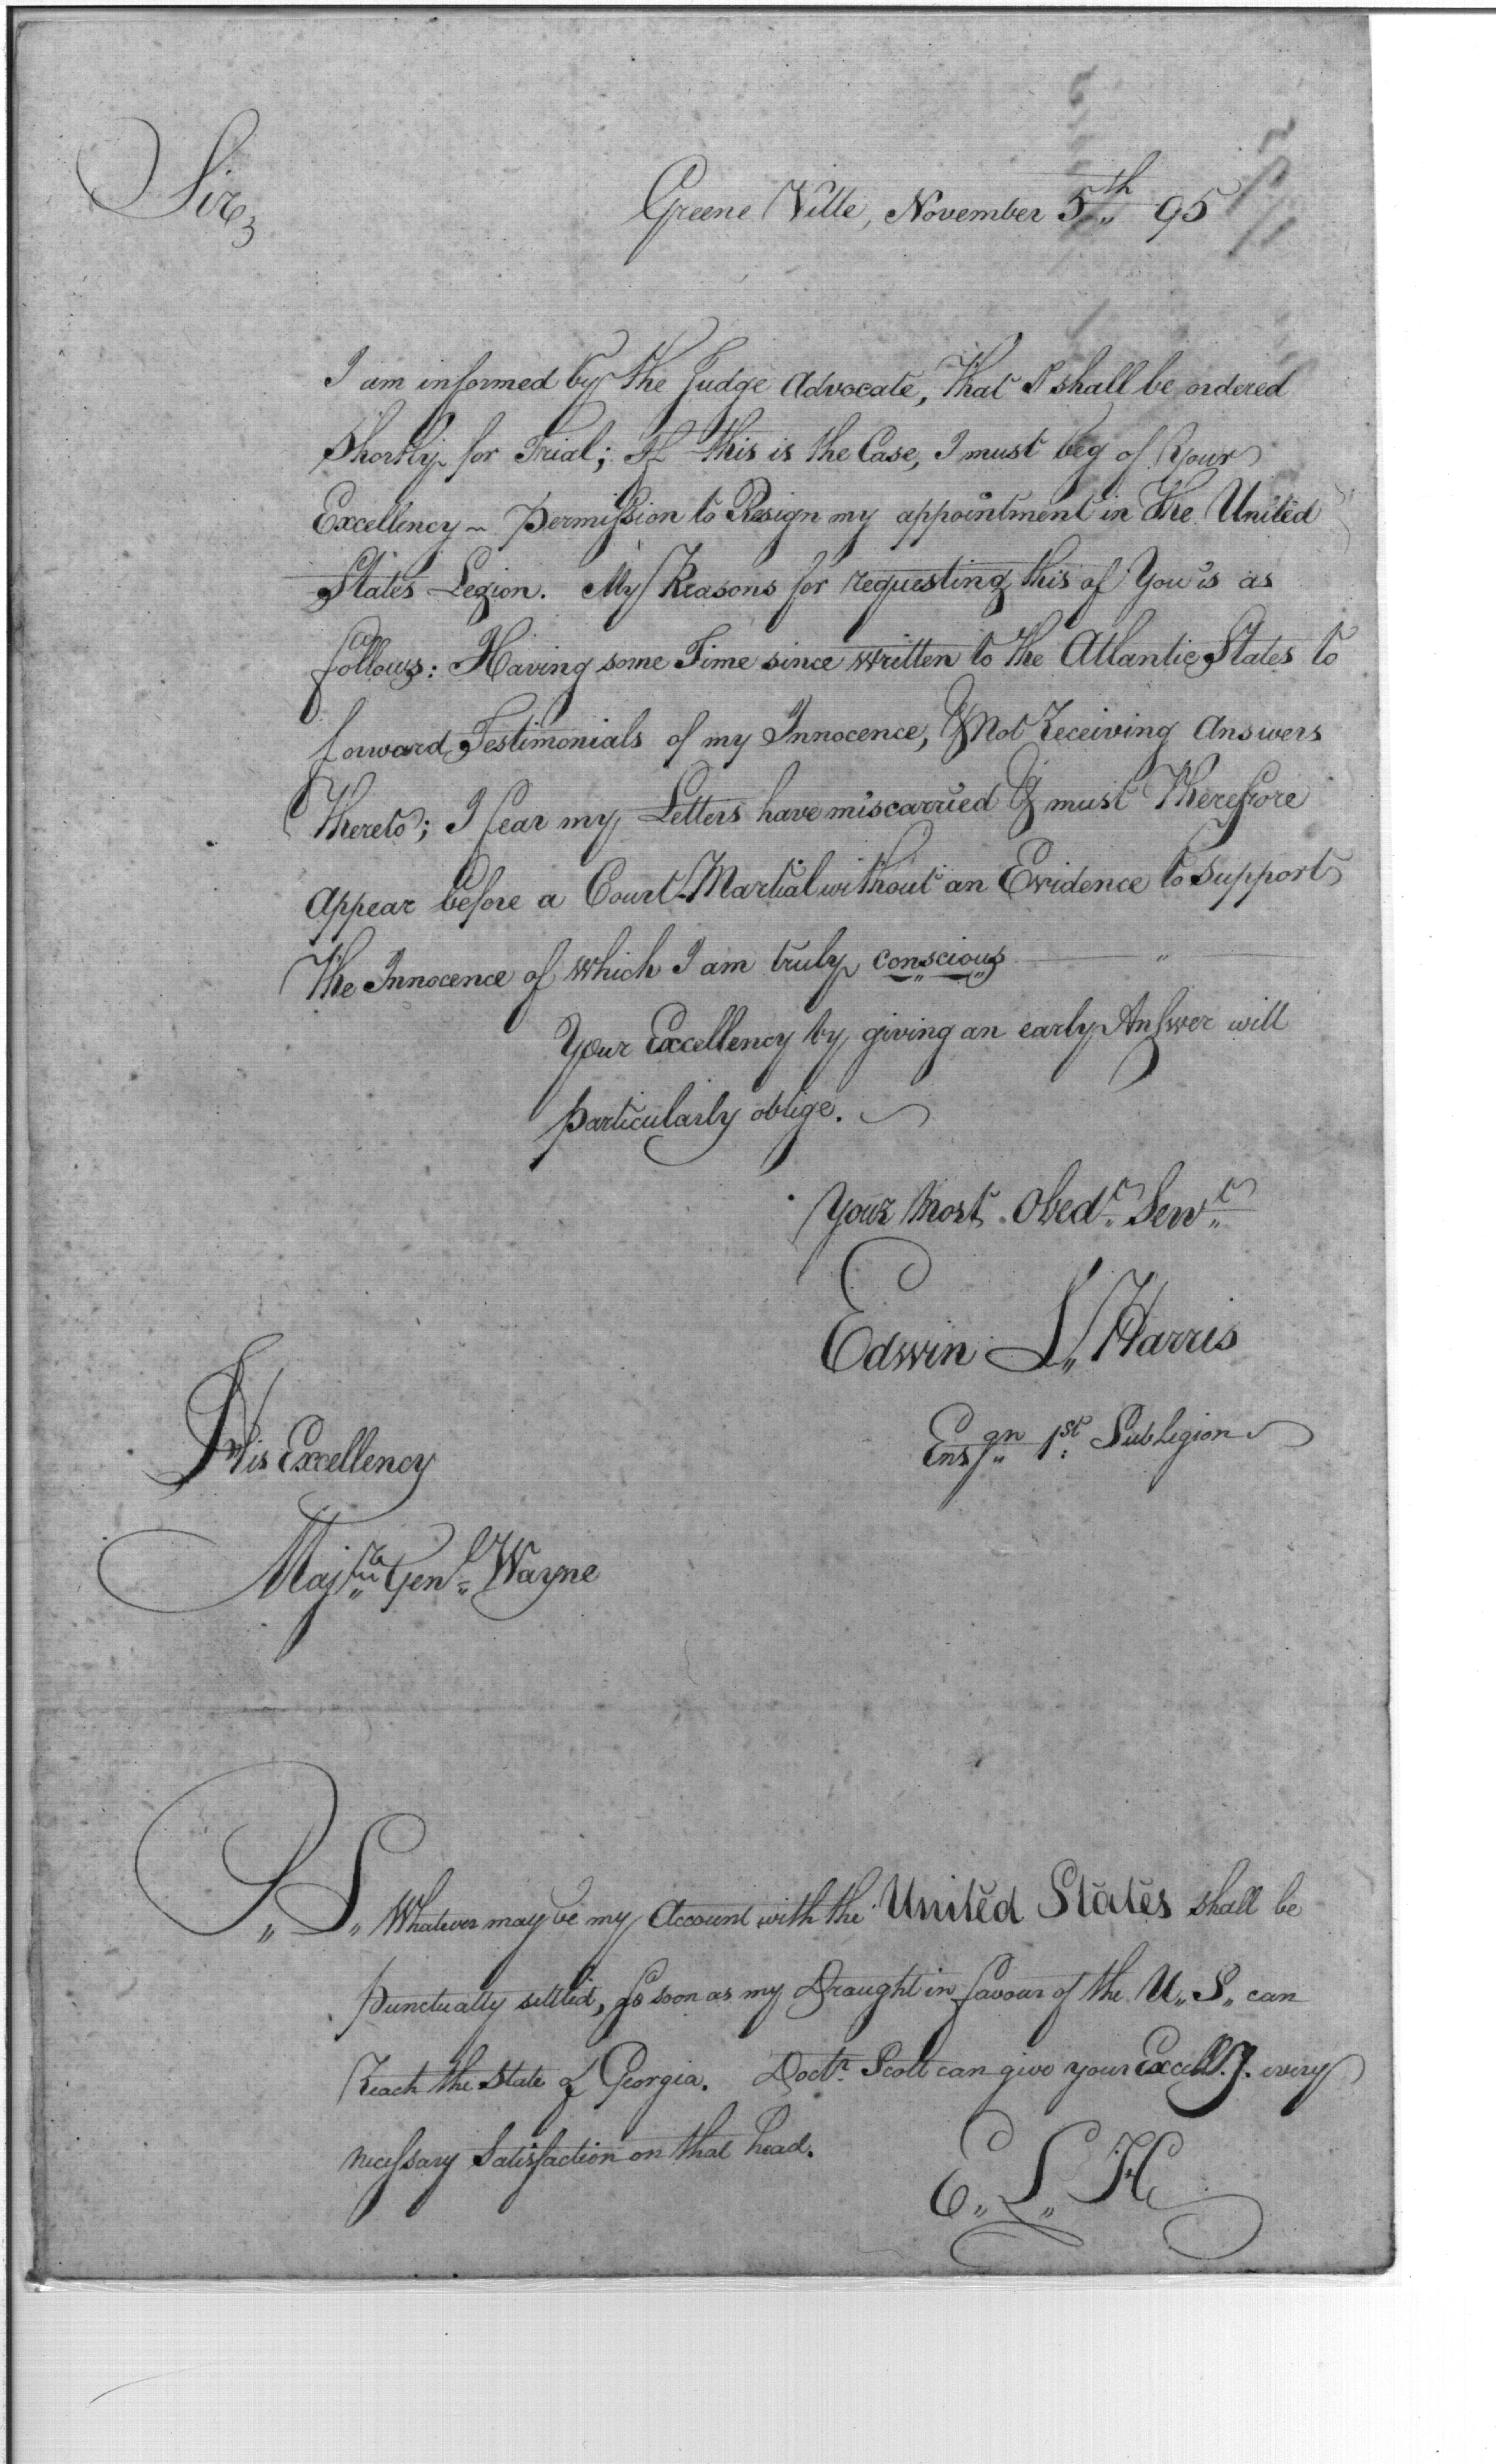 Sir,
Greene Ville, November 5th 95
I am informed by the Judge Advocate, that I shall be ordered
Shortly for Trial; If this is the Case, I must beg of Your
Excellency ~ Permission to Resign my appointment in the United
States Legion. My Reasons for requesting this of You is as
follows: Having some Time since written to the Atlantic States to
forward Testimonials of my Innocence, & Not Receiving Answers
thereto; I fear my Letters have miscarried & must Therefore
Appear before a Court Martial without an Evidence to support
the Innocence of which I am truly conscious
Your Excellency by giving an early Answer will
particularly oblige.
Your Most Obedt. Servt.
Edwin L. Harris
Ensgn 1st: SubLegion
His Excellency
Majr. Genl. Wayne
P,, S,, Whatever may be my Account with the United States shall be
Punctually settled, so soon as my Draught in favour of the U,, S,, can
Reach the State of Georgia. Doctr. Scott can give your Excell.y. every
necessary Satisfaction on that head.
E,, L,, H